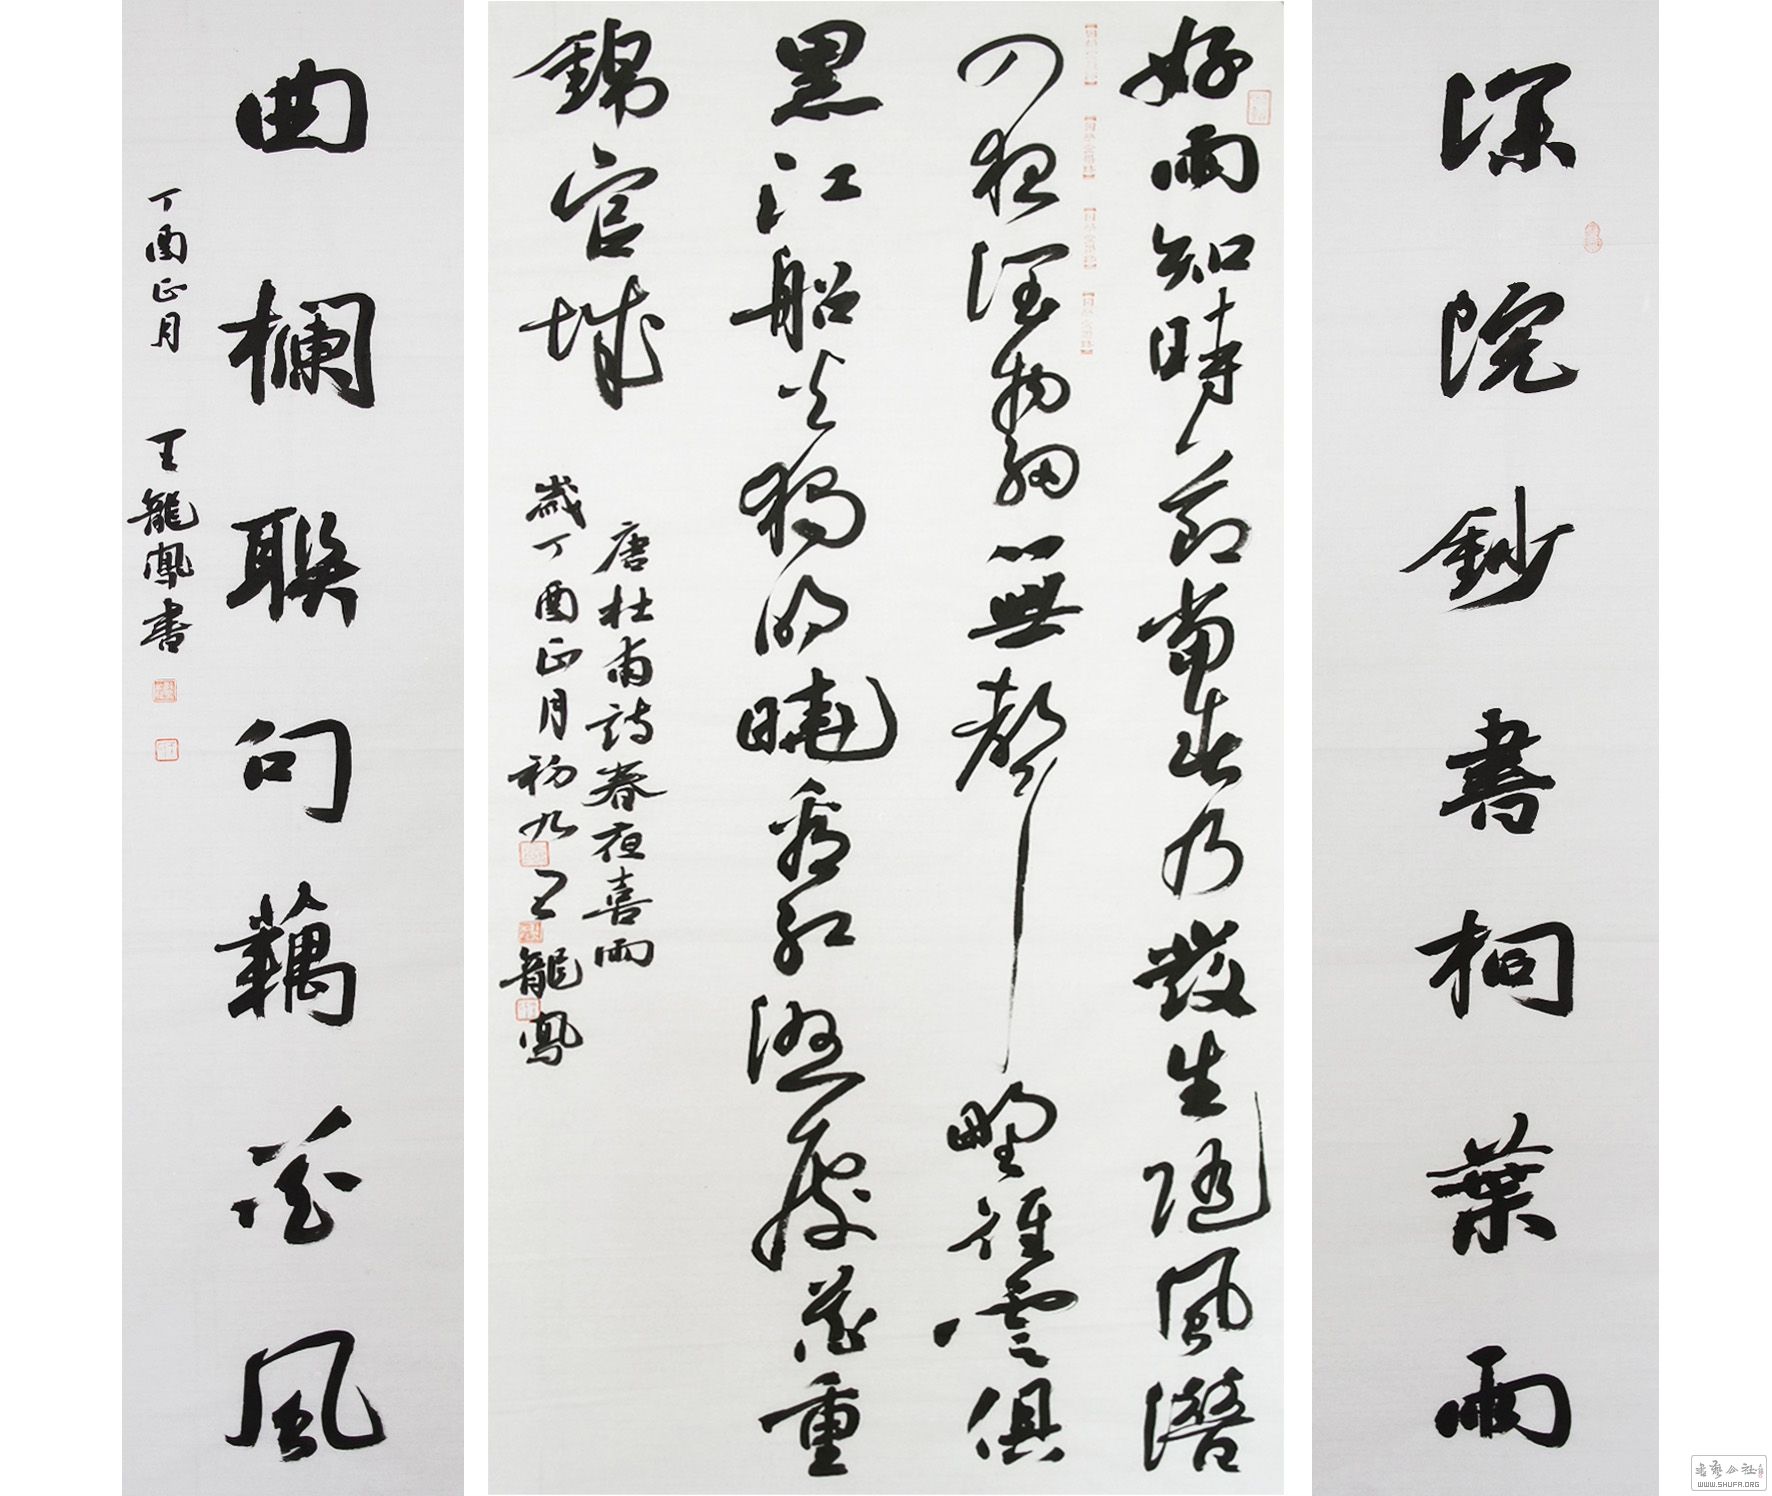 深院鈔書桐葉雨
好雨知時節當春乃發生隨風潛
入夜潤物細無聲野徑雲俱
黑江船火獨明曉看紅濕處花重
錦官城
唐杜甫詩春夜喜雨
歲丁酉正月初九王龍鳳
曲欄聯句藕花風
丁酉正月 王龍鳳書
书艺公社
WWW.SHUFA.ORG